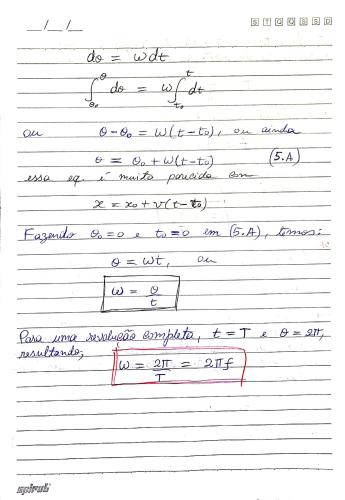 __/__/__ S T Q Q S S D
dθ = ωdt
∫θ₀^θ dθ = ω∫t₀^t dt
ou θ-θ₀ = ω(t-t₀), ou ainda
θ = θ₀ + ω(t-t₀) (5.A)
essa eq. é muito parecida com
x = x₀ + v(t-t₀)
Fazendo θ₀=0 e t₀=0 em (5.A), temos:
θ = ωt, ou
ω = θ/t
Para uma revolução completa, t = T e θ = 2π,
resultando,
ω = 2π/T = 2πf
spiral